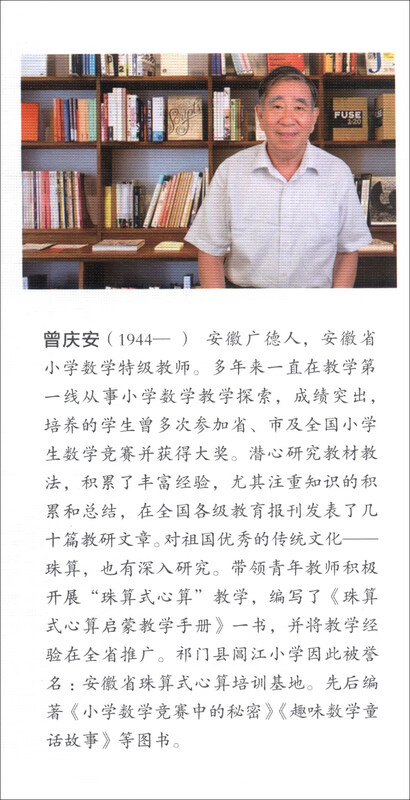 FUSE
曾庆安（1944— ） 安徽广德人，安徽省
小学数学特级教师。多年来一直在教学第
一线从事小学数学教学探索，成绩突出，
培养的学生曾多次参加省、市及全国小学
生数学竞赛并获得大奖。潜心研究教材教
法，积累了丰富经验，尤其注重知识的积
累和总结，在全国各级教育报刊发表了几
十篇教研文章。对祖国优秀的传统文化——
珠算，也有深入研究。带领青年教师积极
开展“珠算式心算”教学，编写了《珠算
式心算启蒙教学手册》一书，并将教学经
验在全省推广。祁门县阊江小学因此被誉
名：安徽省珠算式心算培训基地。先后编
著《小学数学竞赛中的秘密》《趣味数学童
话故事》等图书。